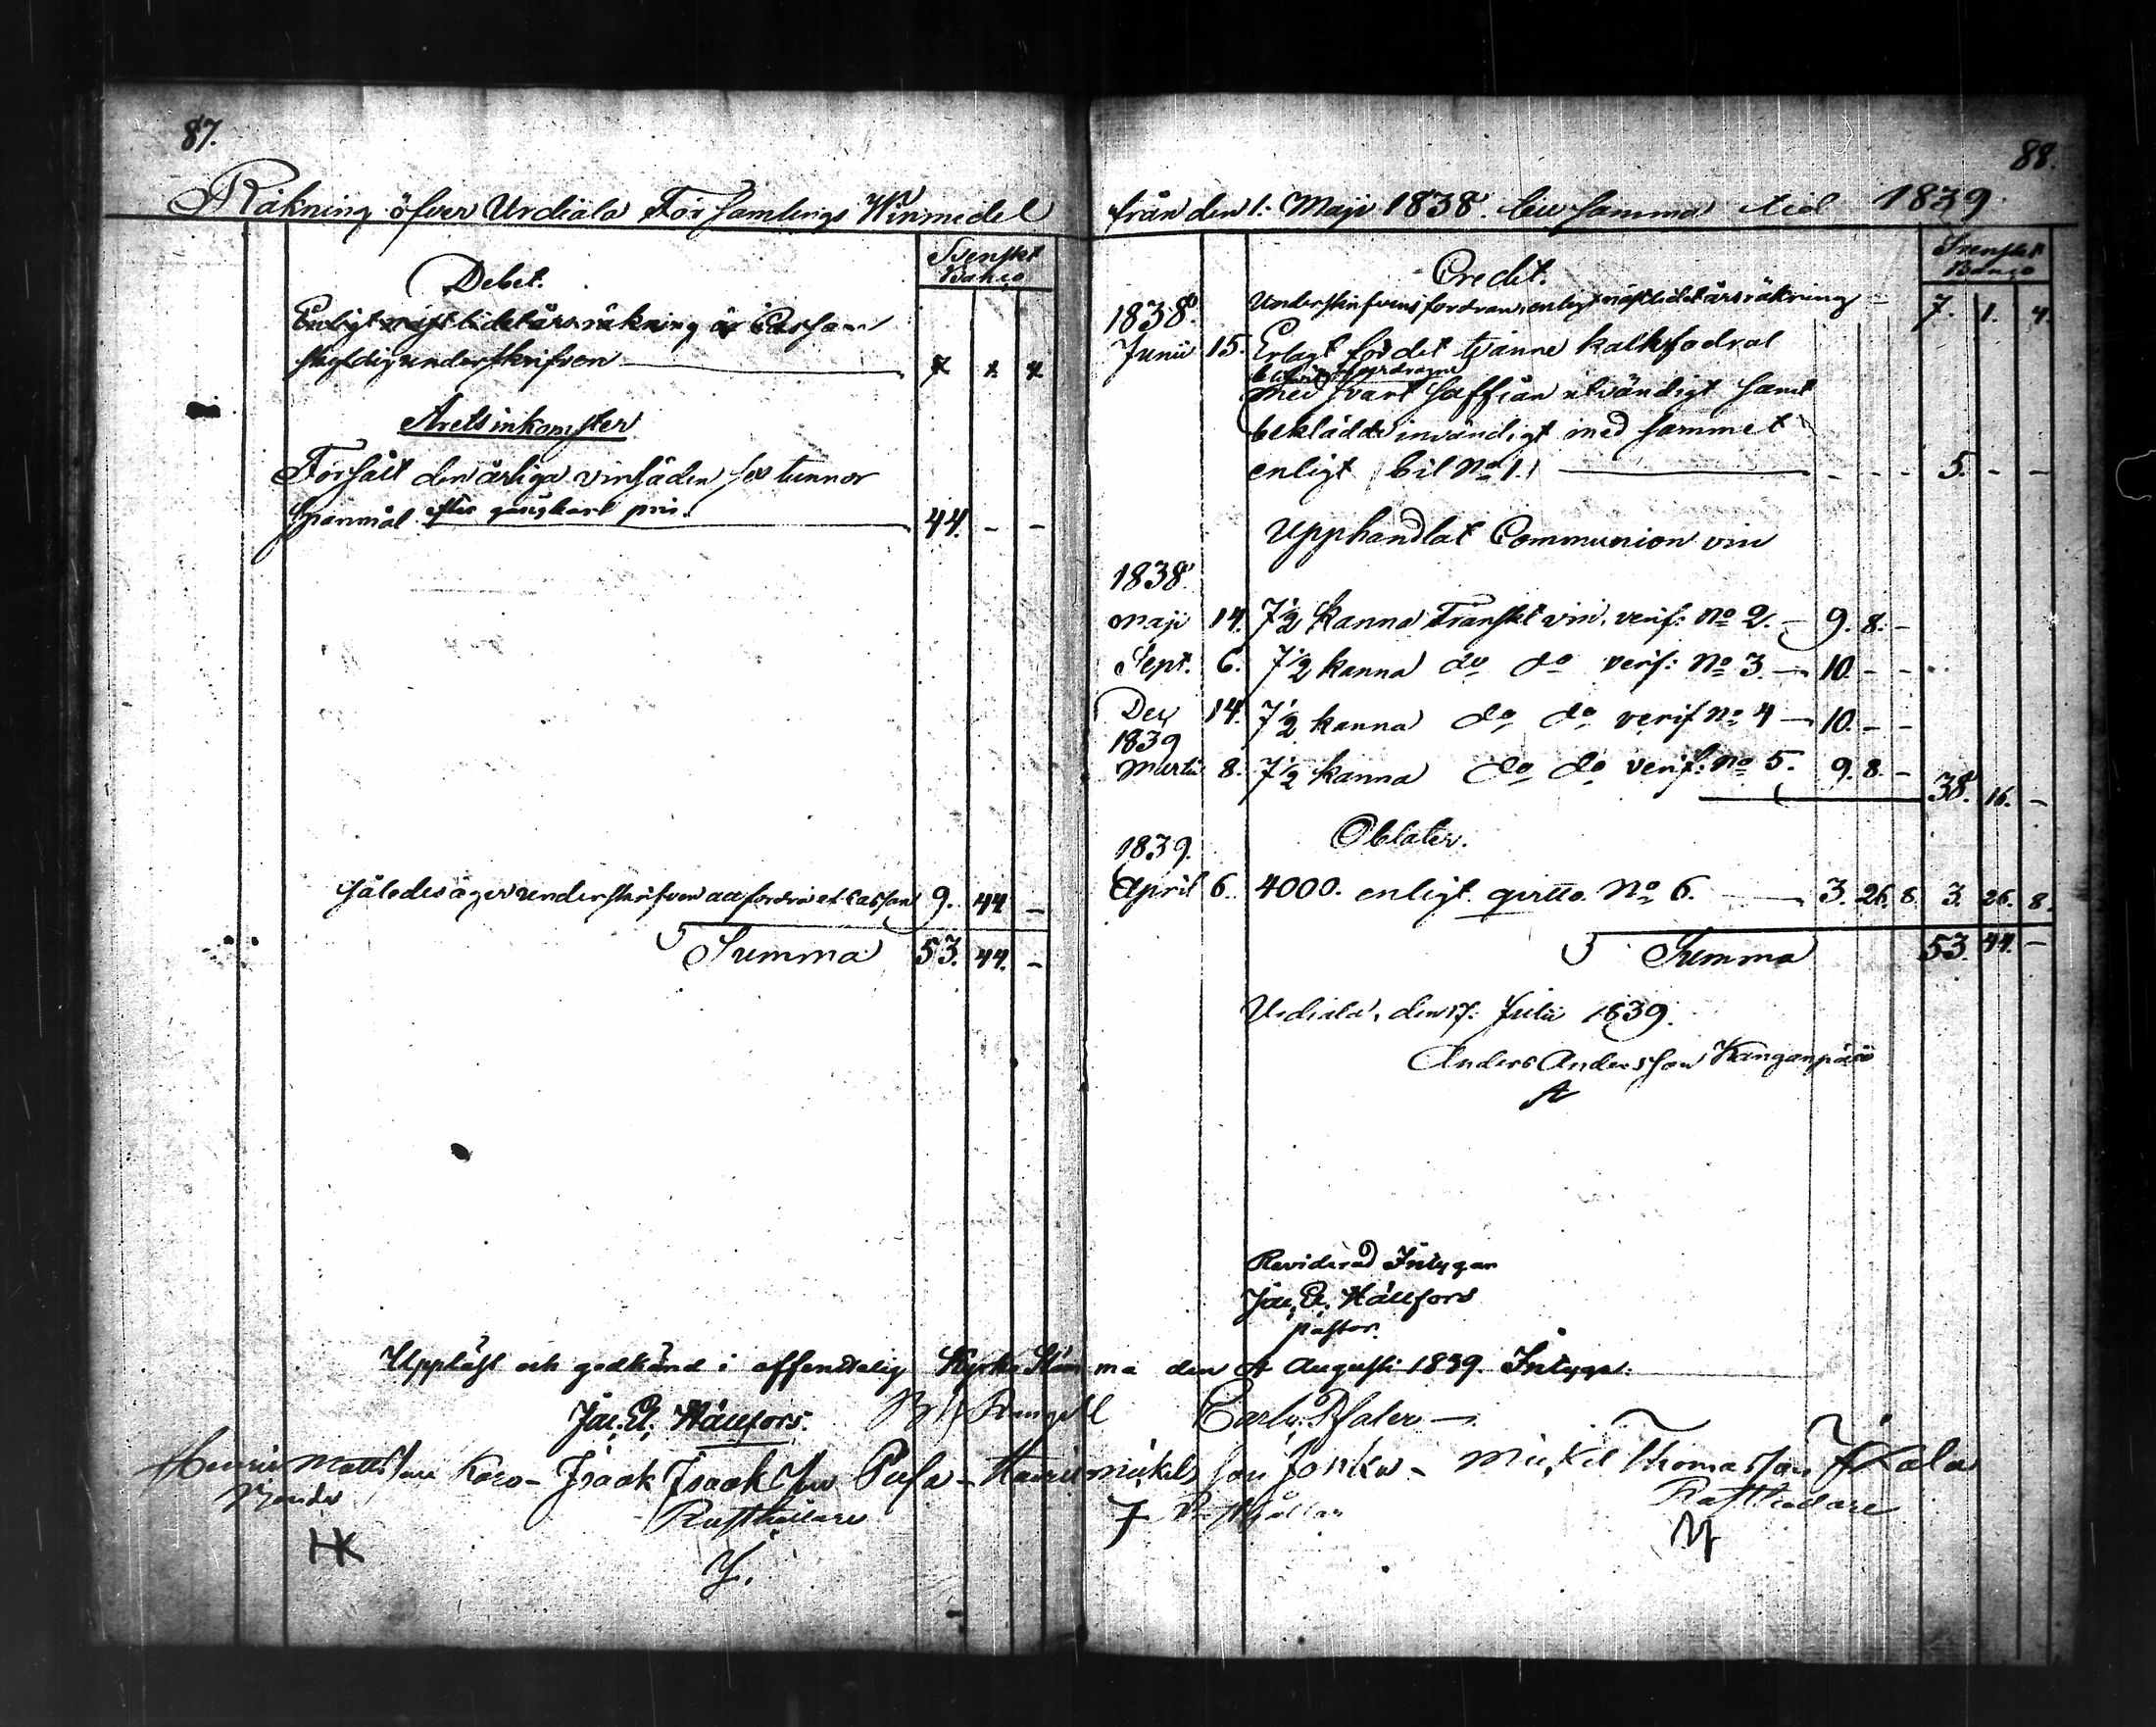 87.
Räkning öfver Urdiala Församlings Winmedel
Svenskt
Banco
Debet.
Enligt nästledet års räkning är Cassan
skyldig underskrifven 7 1. 4
Årets inkomster
Försålt den årliga vinsäden sex tunnor
Spanmål efter gångbart pris. 44. - -
således äger underskrifven att fordra af Cassan 9. 44 -
Summa 53. 44. -
88.
från den 1. Maji 1838. till samma tid 1839
Svenskt
Banco
Credit.
1838. Underskrifvens fordran, enligt nästledet årsräkning 7. 1. 4.
Junii 15. Erlagt för det tvänne kalkfodral
öfverdragne
med svart saffian utvändigt samt
beklädde invändigt med sammet
enligt bil No 1. - - - 5. - -
Upphandlat Communion vin
1838
Maji 14. 7 1/2 kanna Franskt vin. verif: No 2. 9. 8. -
Sept. 6. 7 1/2 kanna do do verif: No 3. 10. - -
Dec 14. 7 1/2 kanna do do verif No 4 10. - -
1839
Martii 8. 7 1/2 kanna do do verif: No 5. 9. 8. -
38. 16. -
1839. Oblater.
April 6. 4000. enligt qvitto No 6. 3. 26. 8. 3. 26. 8.
Summa 53. 44. -
Urdiala, den 17. Julii 1839.
Anders Andersson Kanganpää
A
Reviderad Intygar
Hällfors
pastor.
Uppläst och godkänd i offendtelig Kyrko Stämma den 4 Augusti 1839. Intyga:
Hällfors. Carl Pfaler
Henric Mattsson Karo - Isaak Isaaksson Pusa - Henric Mickelsson Jonku - Mickel Thomasson
Bonde Rusthållare Rusthållare
HK